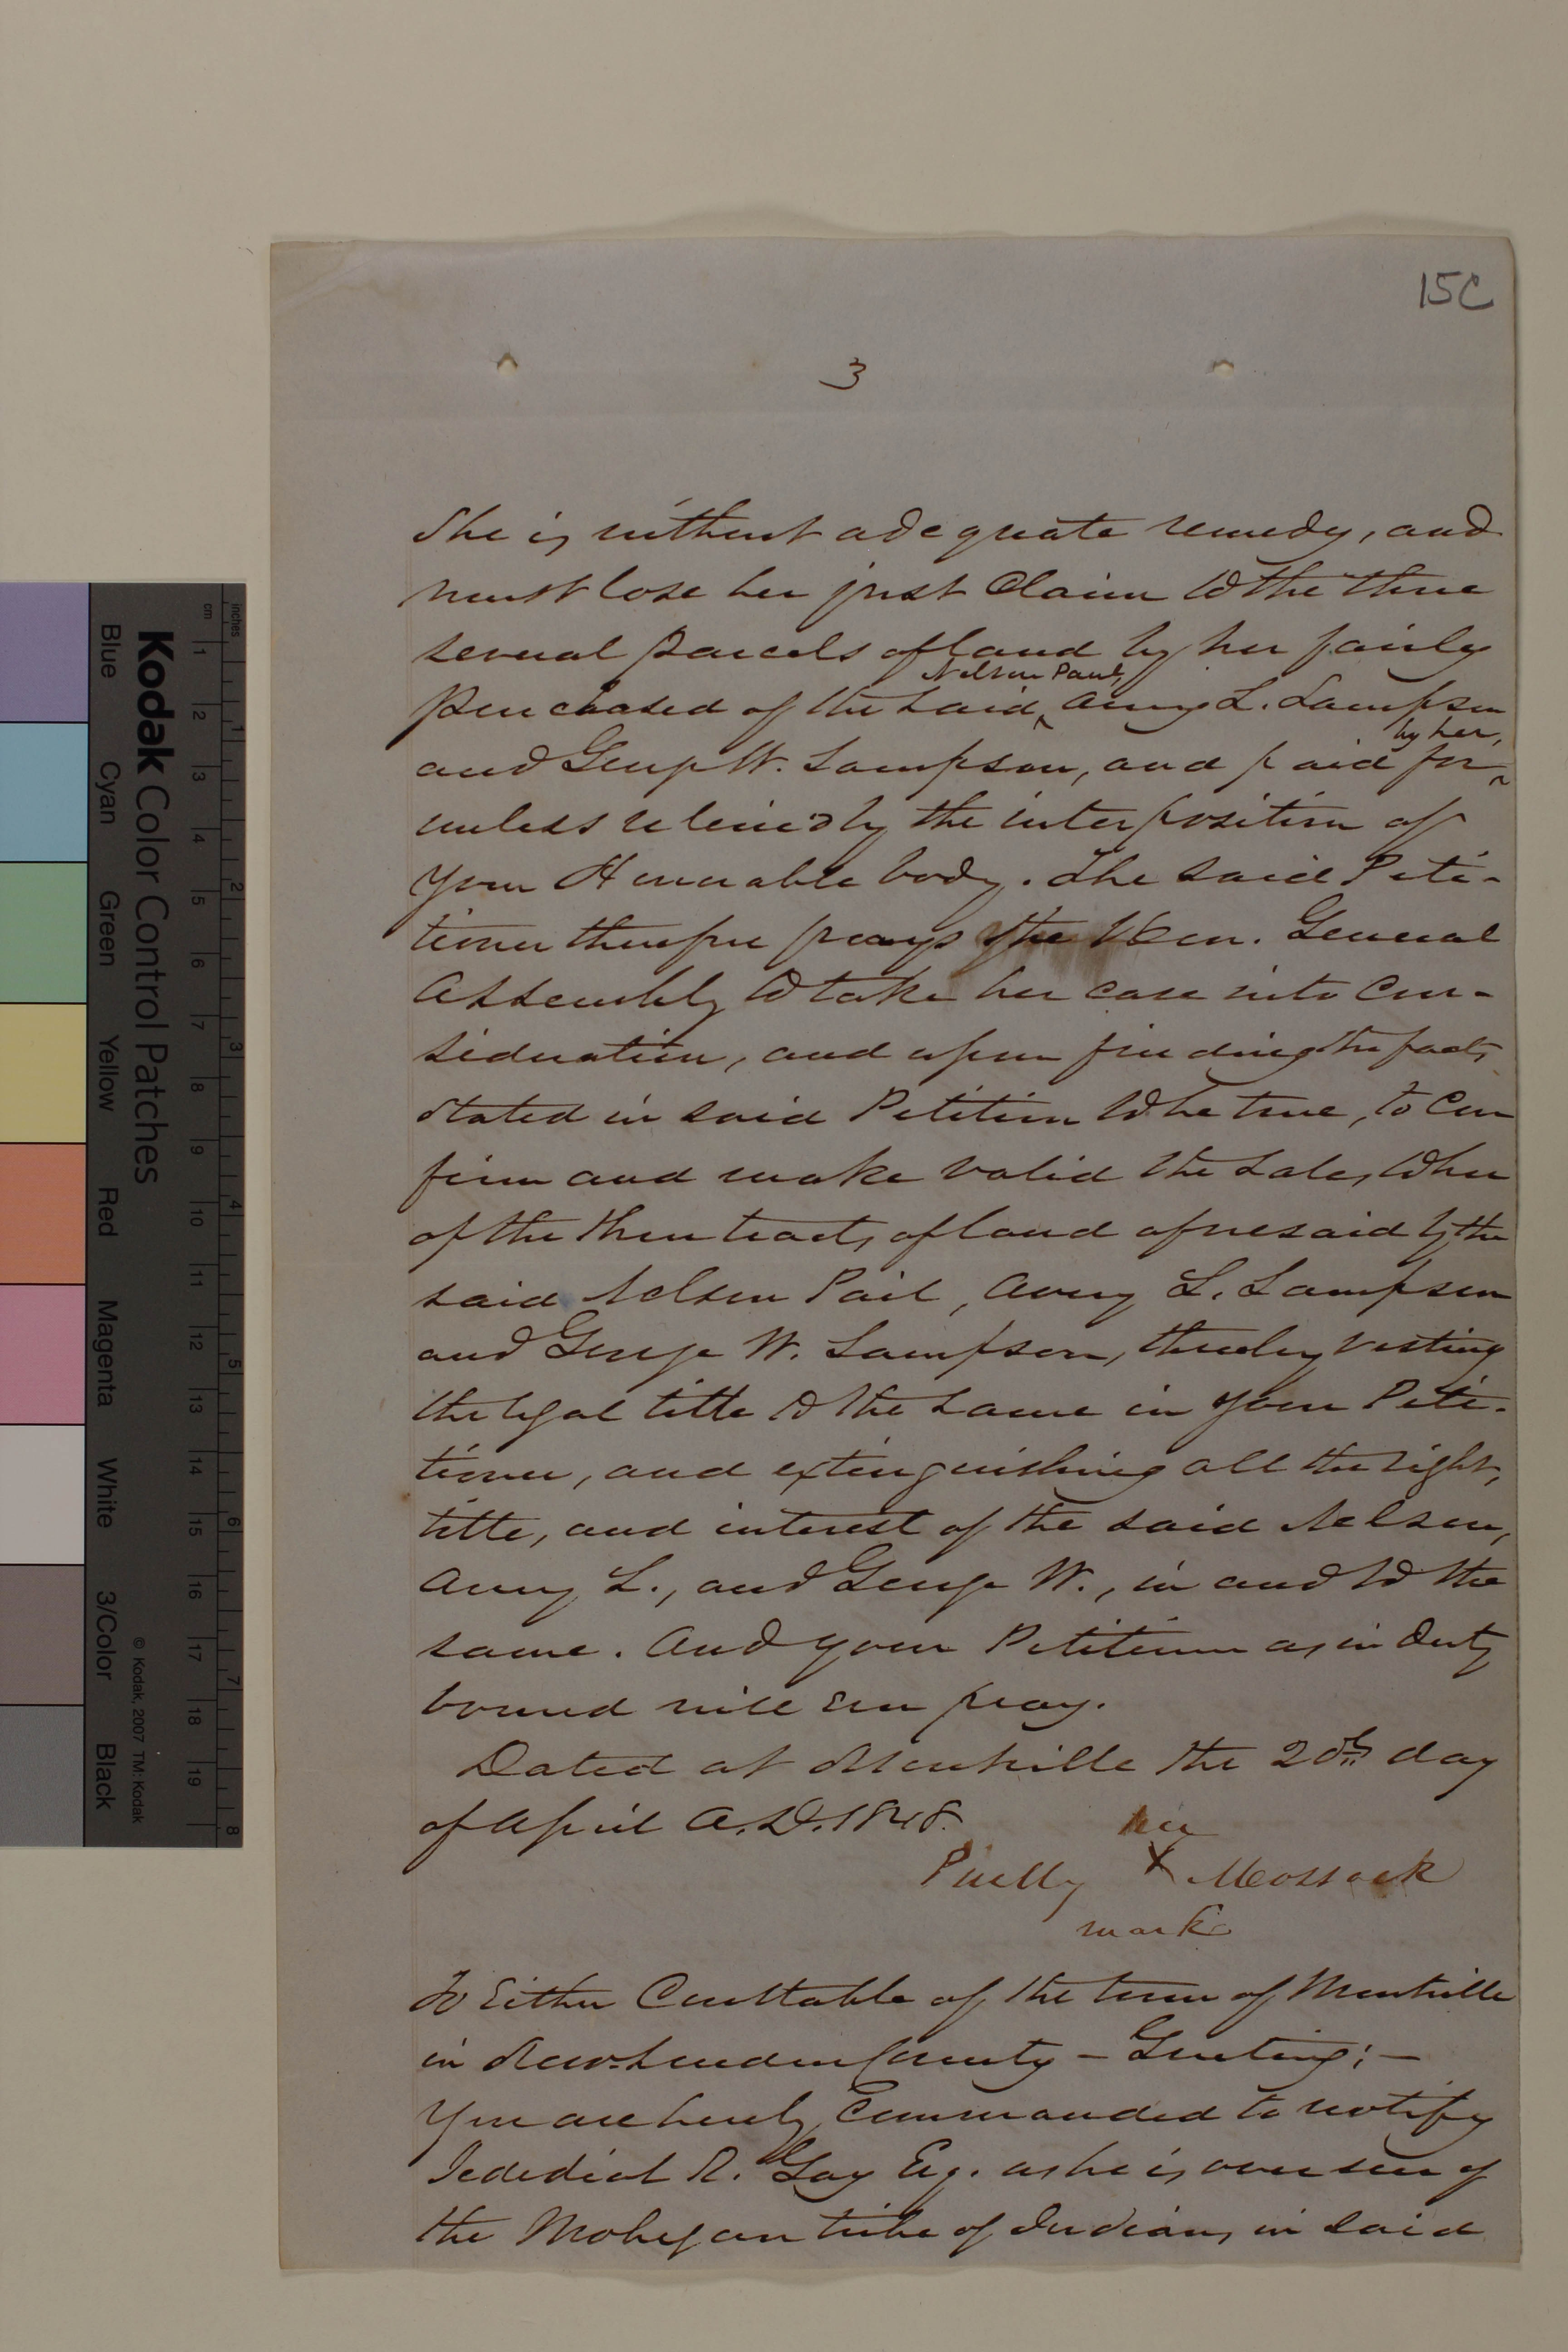 15C
3
She is without adequate remedy, and
must lose her just Claim to the three
several parcels of land by her fairly
Nelson Paul,
purchased of the said ^ Amy L. Lampson
by her,
and George W. Lampson, and paid for ^
unless relieved by the interposition of
your Honorable body. The said Peti-
tioner therefore prays the Hon. General
Assembly to take her case into Con-
sideration, and upon finding the facts
stated in said Petition to be true, to Con
firm and make valid the sales to her
of the three tracts of land aforesaid by the
said Nelson Paul, Amy L. Lampson
and George W. Lampson, thereby vesting
the legal title to the same in your Peti-
tioner, and extinguishing all the right,
title, and interest of the said Nelson,
Amy L., and George W., in and to the
same. And your Petitioner as in duty
bound will ever pray.
Dated at Montville the 20th day
of April A.D. 1848.
her
X Mossock
mark
To Either Constable of the town of Montville
in New-London County - Greeting; -
You are hereby Commanded to notify
Jedediah R. Gay Esq. as he is overseer of
the Mohegan tribe of Indians in said
Kodak Color Control Patches
Blue Cyan Green Yellow Red Magenta White 3/Color Black
© Kodak, 2007 TM: Kodak
inches 1 2 3 4 5 6 7 8
cm 1 2 3 4 5 6 7 8 9 10 11 12 13 14 15 16 17 18 19